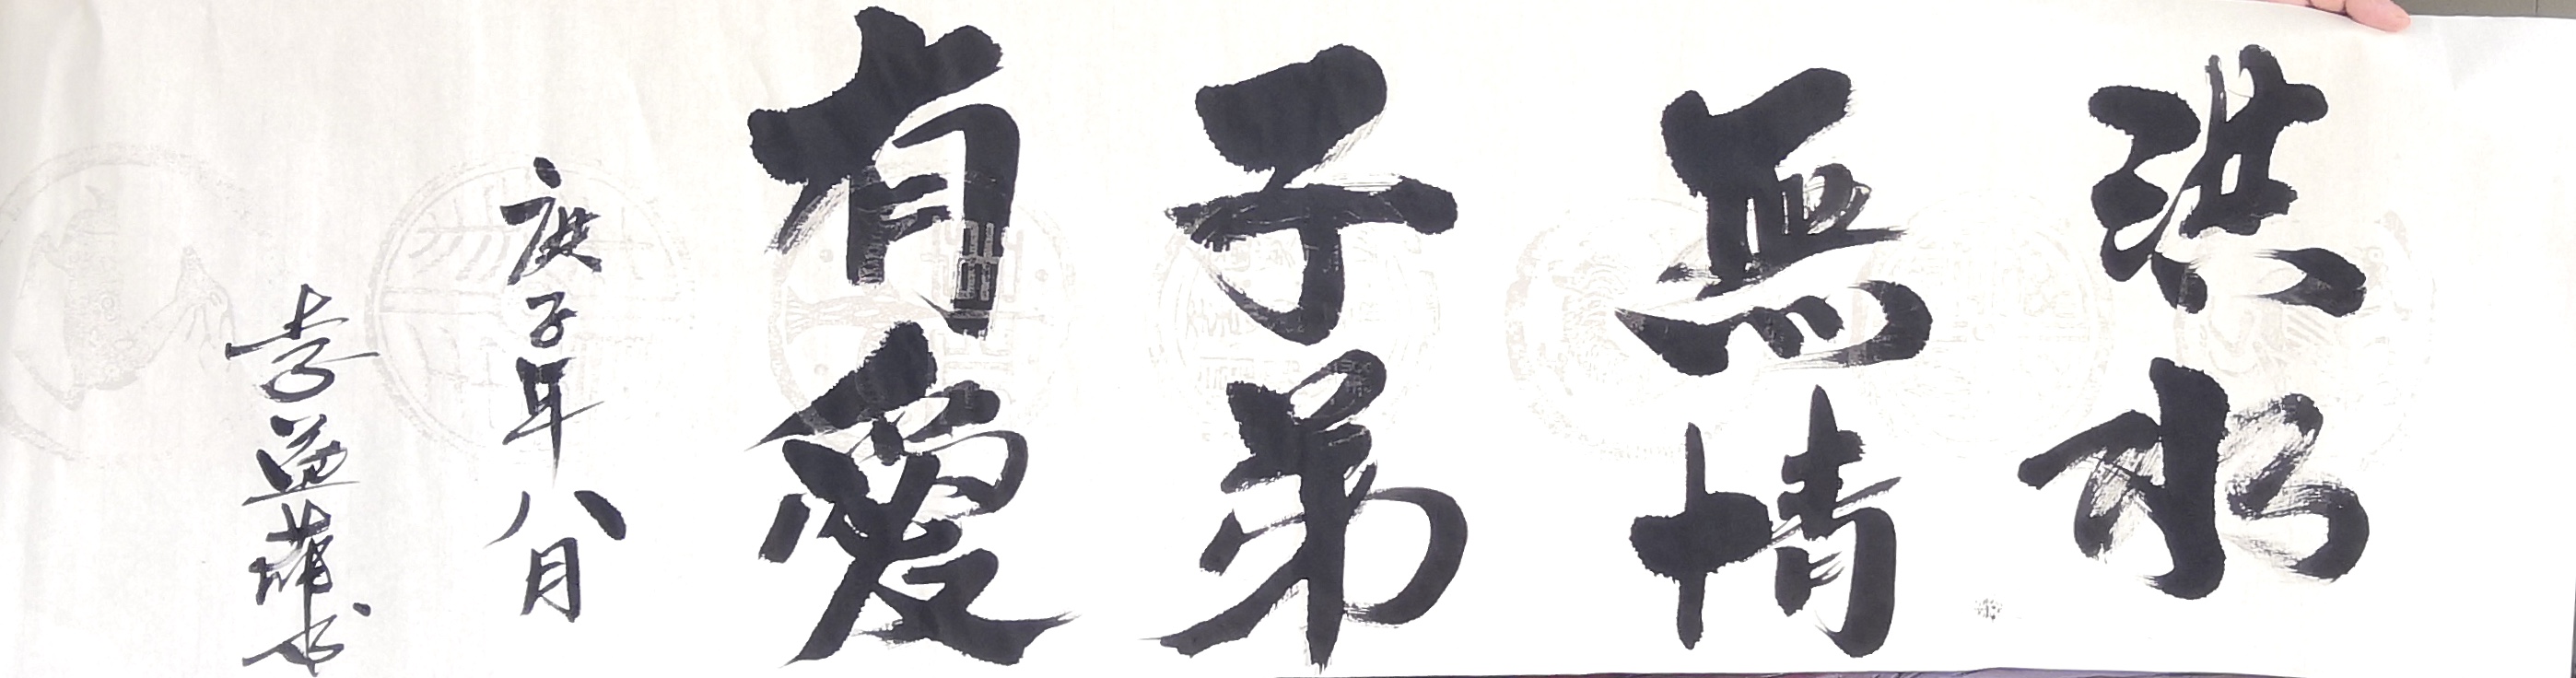 洪水
無情
子弟
有愛
庚子年八月
李益蓮书